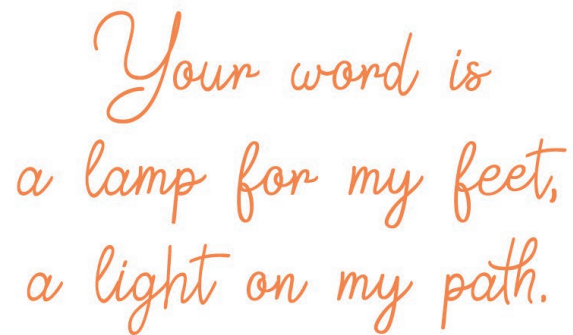 Your word is
a lamp for my feet,
a light on my path.